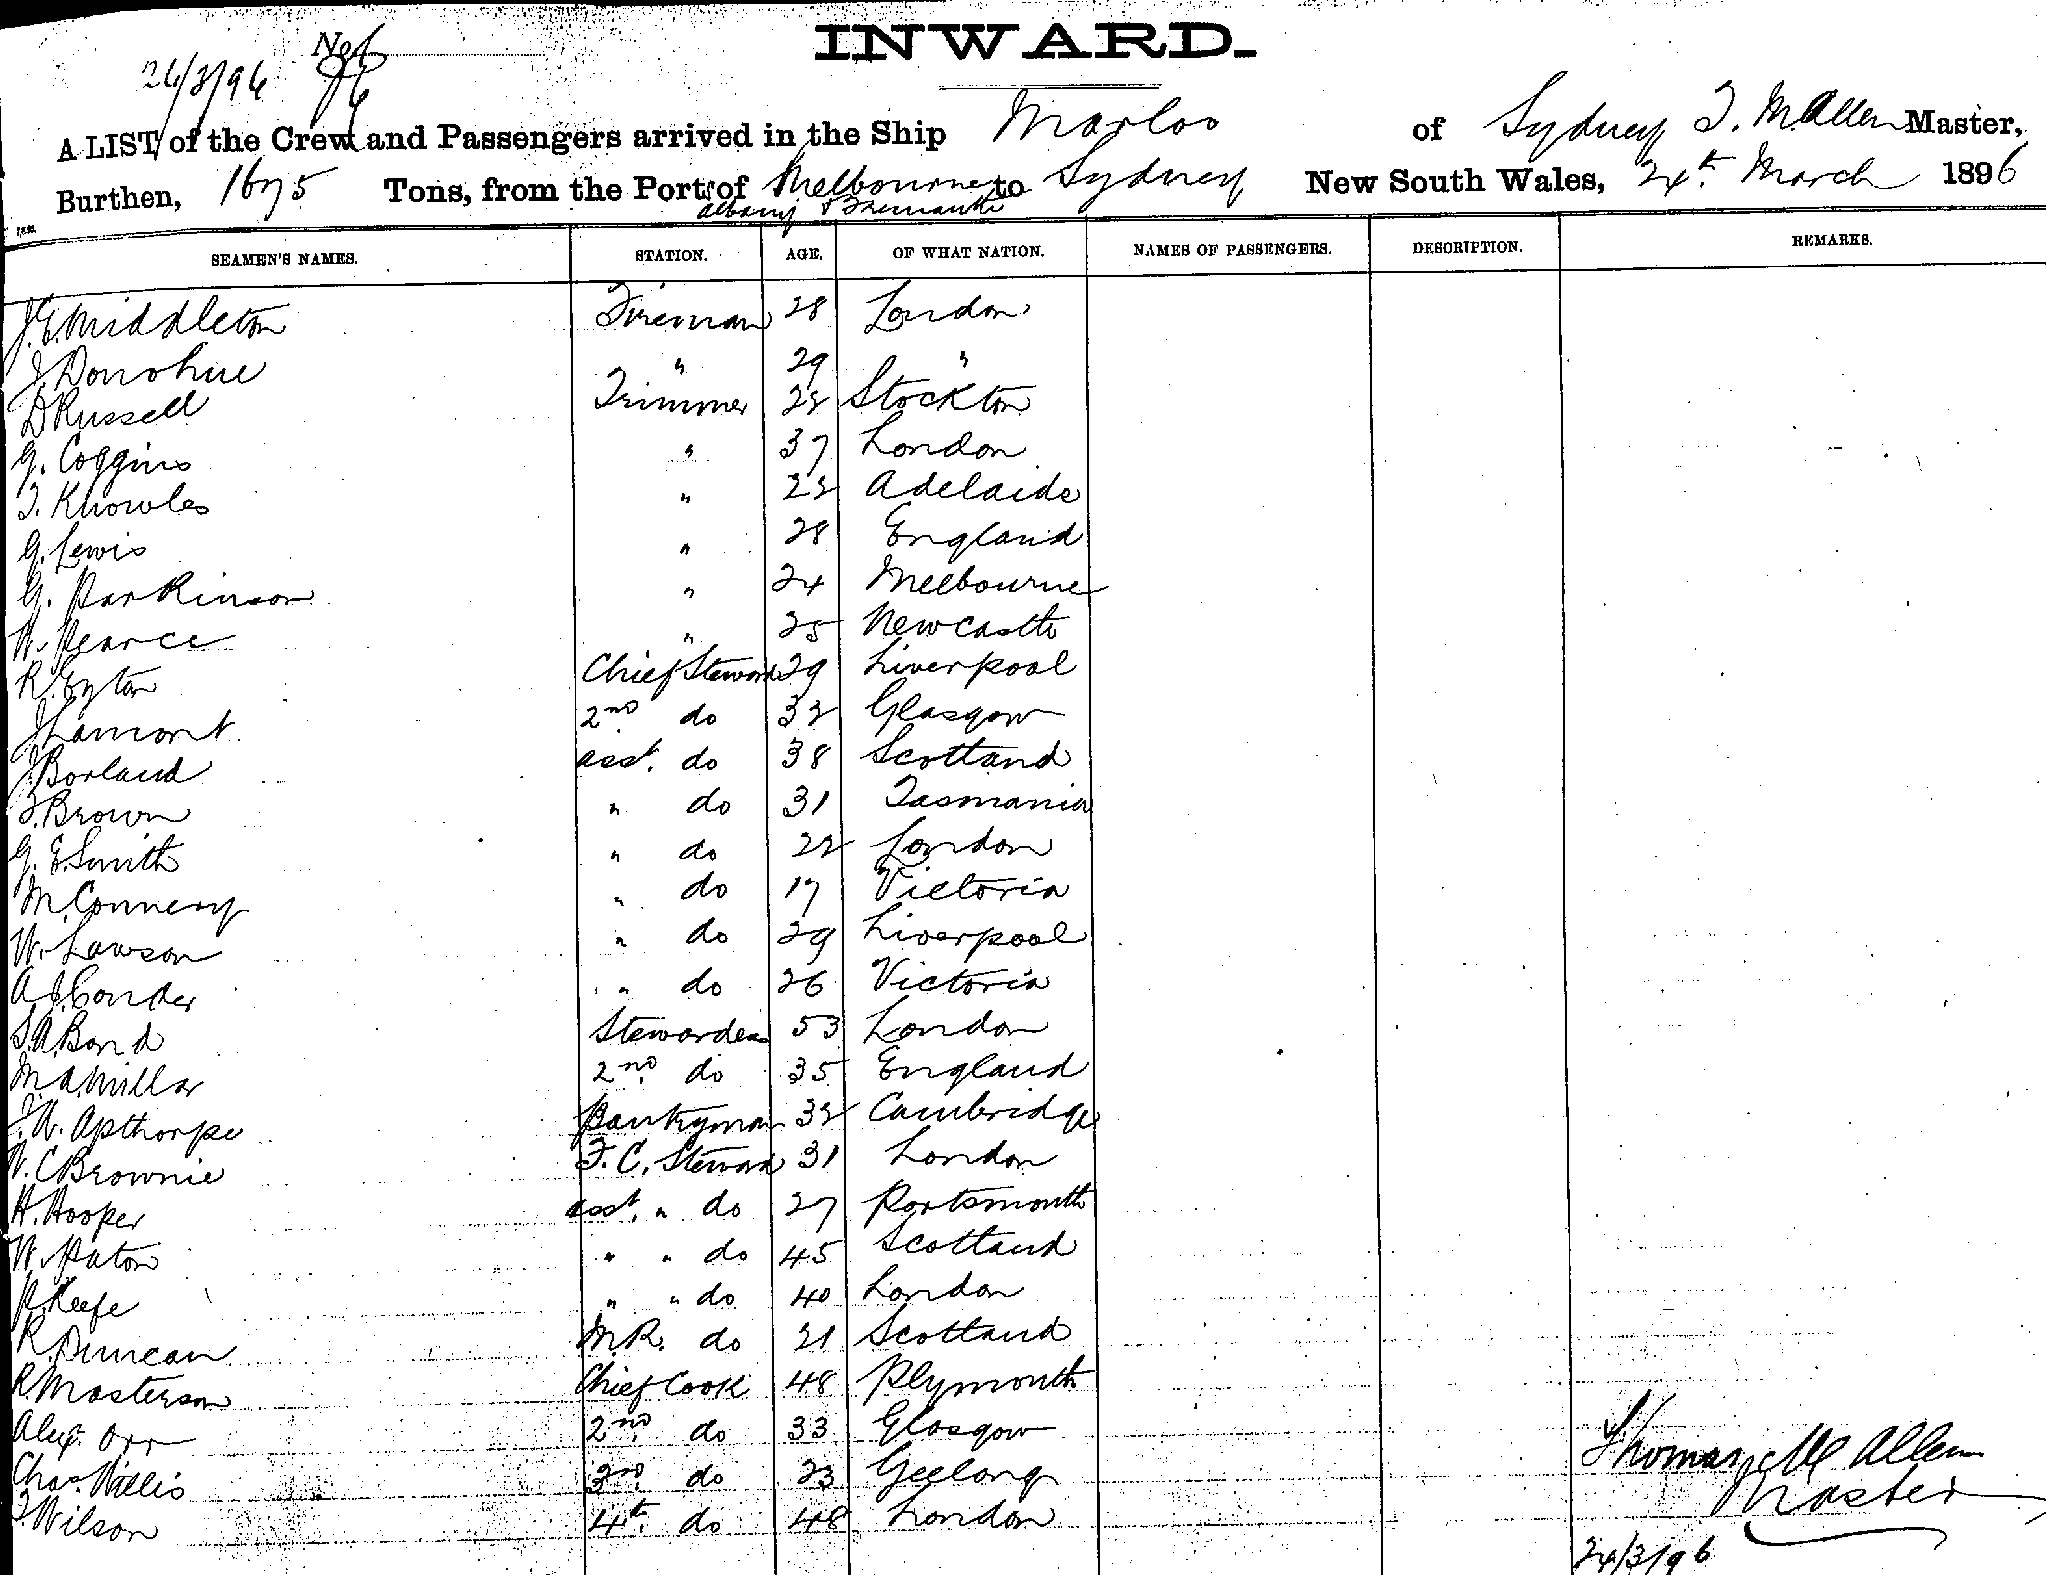 INWARD.
24/3/96
A LIST of the Crew and Passengers arrived in the Ship Marloo of Sydney T. McAllen Master,
Burthen, 1675 Tons, from the Port of Melbourne to Sydney New South Wales, 24th March 1896
Albany & Fremantle
SEAMEN'S NAMES. STATION. AGE. OF WHAT NATION. NAMES OF PASSENGERS. DESCRIPTION. REMARKS.
J. E. Middleton Fireman 28 London
J. Donohue " 29 "
D Russell Trimmer 22 Stockton
G. Coggins " 37 London
T. Knowles " 22 Adelaide
G. Lewis " 28 England
G. Parkinson " 24 Melbourne
W. Pearce " 25 Newcastle
R. Eyton Chief Steward 29 Liverpool
J Lamont 2nd do 32 Glasgow
J Borland asst. do 38 Scotland
T. Brown " do 31 Tasmania
G. E. Smith " do 22 London
M. Connery " do 17 Victoria
W. Lawson " do 29 Liverpool
A J Conder " do 26 Victoria
S. A. Bond Stewardess 53 London
M. A. Millar 2nd do 35 England
J. W. Apthorpe Pantryman 32 Cambridge
W. C Brownie F. C. Steward 31 London
H. Hooper asst. " do 27 Portsmouth
W. Paton " " do 45 Scotland
P. Keefe " " do 40 London
R. Duncan M.R. do 21 Scotland
R Masterson Chief Cook 48 Plymouth
Alex. Orr 2nd do 33 Glasgow
Chas. Willis 3rd do 23 Geelong
T. Wilson 4th do 48 London
Thomas McAllen
Master
24/3/96